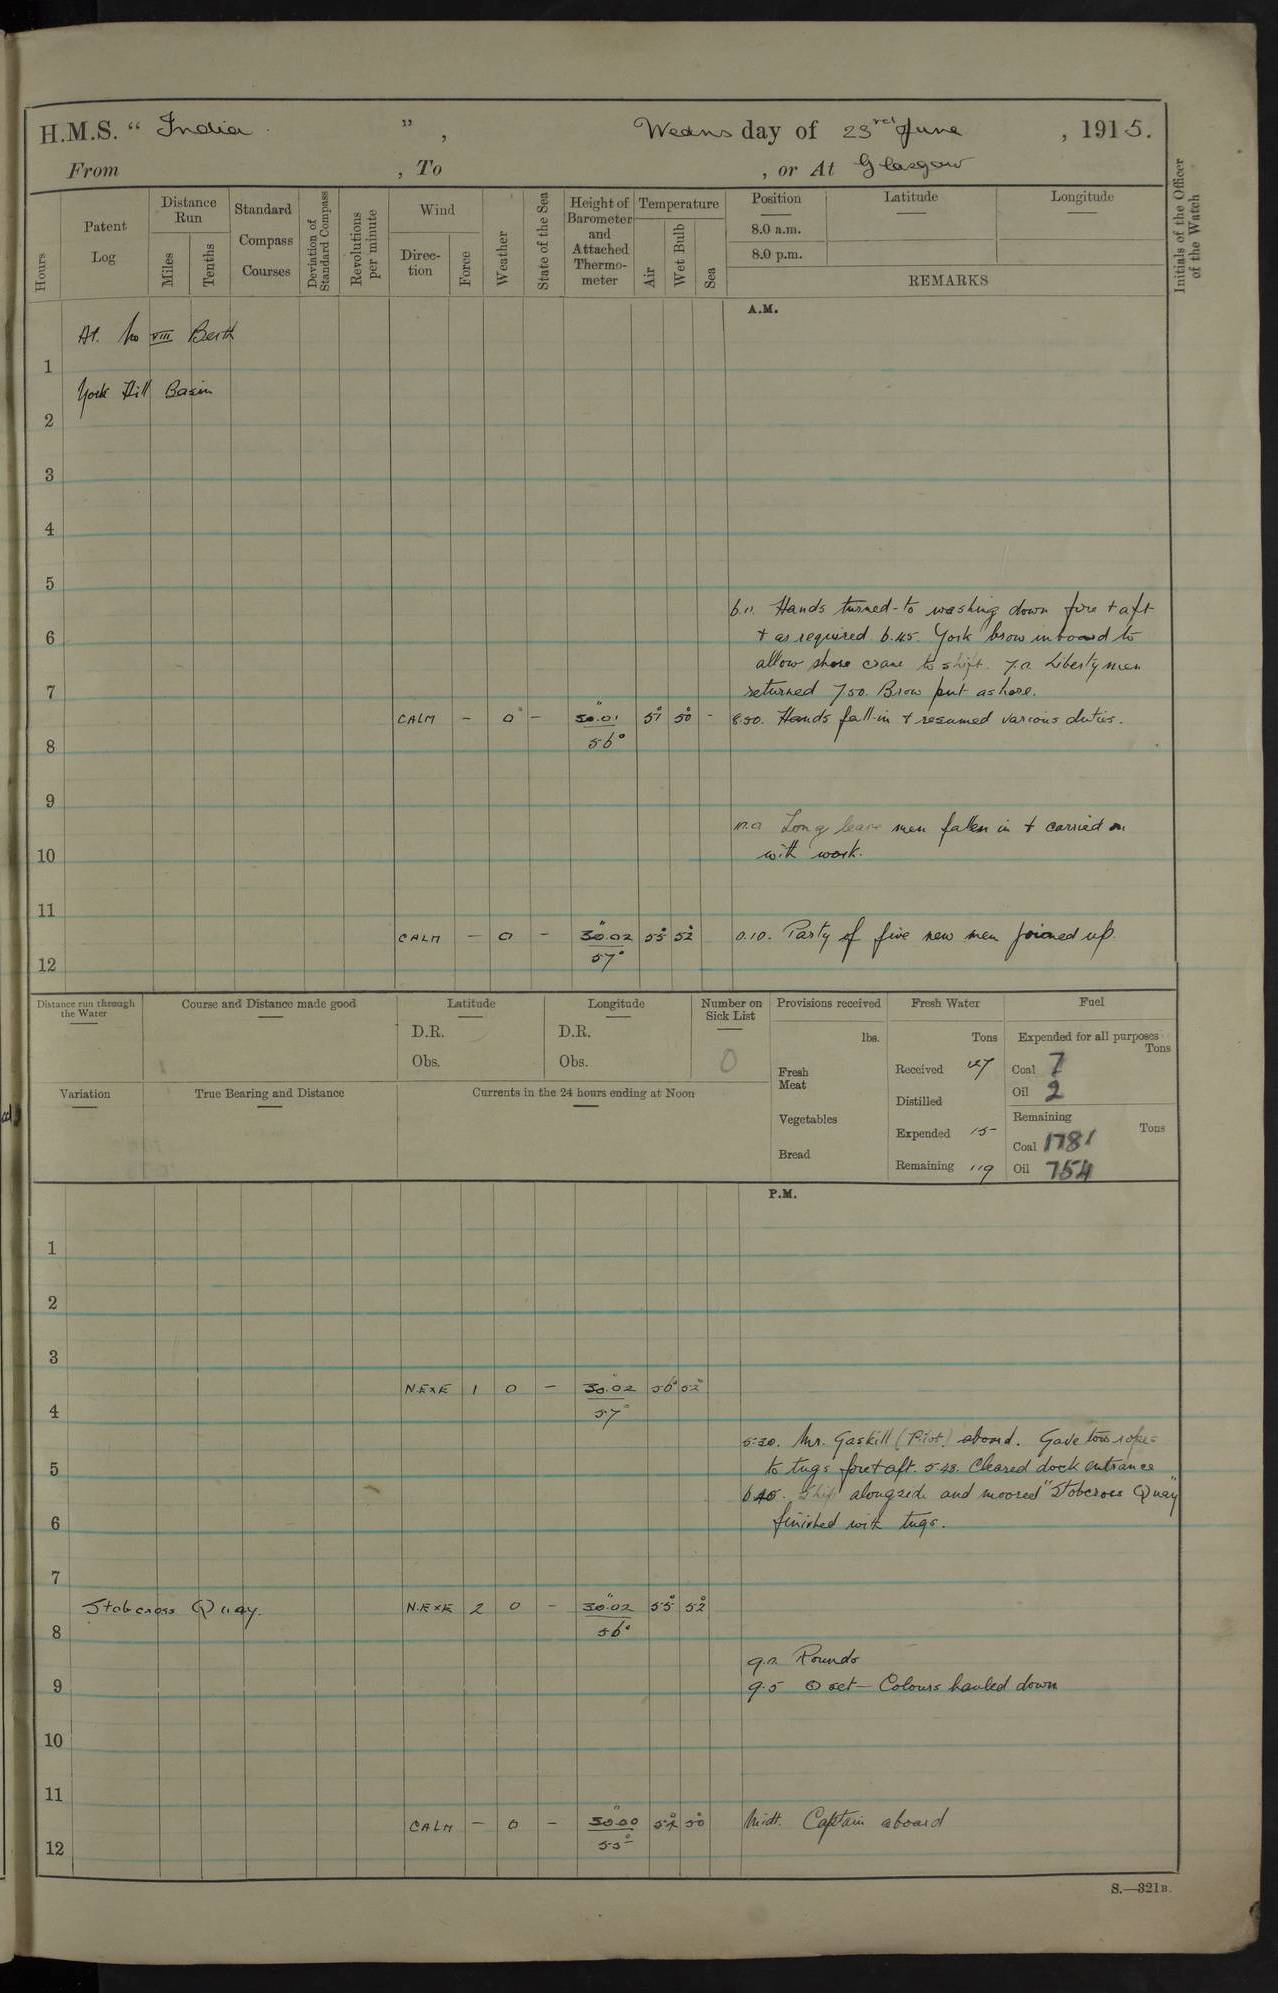 H.M.S. “ India ” , Wednsday of 23rd June , 1915.
From , To , or At Glasgow
Hours
Patent Log
Distance Run
Miles
Tenths
Standard Compass Courses
Deviation of Standard Compass
Revolutions per minute
Wind
Direc-tion
Force
Weather
State of the Sea
Height of Barometer and Attached Thermo-meter
Temperature
Air
Wet Bulb
Sea
Position Latitude Longitude
8.0 a.m.
8.0 p.m.
REMARKS
Initials of the Officer of the Watch
A.M.
At. No VIII Berth
1
York Hill Basin
2
3
4
5
6.0. Hands turned-to washing down fore + aft
6 + as required 6.45. York brow inboard to
allow shore crane to shift. 7.0. Liberty men
7 returned 7.50. Brow put ashore.
CALM - 0 - 30.01 51° 50° - 8.50. Hands fall-in + resumed various duties.
8 56°
9
10.0 Long leave men fallen in + carried on
10 with work.
11
CALM - 0 - 30.02 55° 52° 0.10. Party of five new men joined up.
12 57°
Distance run through the Water
Course and Distance made good
Latitude
D.R.
Obs.
Longitude
D.R.
Obs.
Number on Sick List
0
Provisions received
lbs.
Fresh Meat
Vegetables
Bread
Fresh Water
Tons
Received 27
Distilled
Expended 15
Remaining 119
Fuel
Expended for all purposes
Tons
Coal 7
Oil 2
Remaining
Tons
Coal 1781
Oil 754
Variation
True Bearing and Distance
Currents in the 24 hours ending at Noon
P.M.
1
2
3
N.ExE 1 0 - 30.02 56° 52°
4 57°
5.30. Mr. Gaskill (Pilot) aboard. Gave tow ropes
5 to tugs fore+aft. 5.48. Cleared dock entrance
6.40. Ship alongside and moored "Stobcross Quay"
6 finished with tugs.
7
Stobcross Quay. N.ExE 2 0 - 30.02 55° 52°
8 56°
9.0. Rounds
9 9.5 ☉ set - Colours hauled down
10
11
CALM - 0 - 30.00 54° 50° Midt. Captain aboard
12 55°
S.—321B.